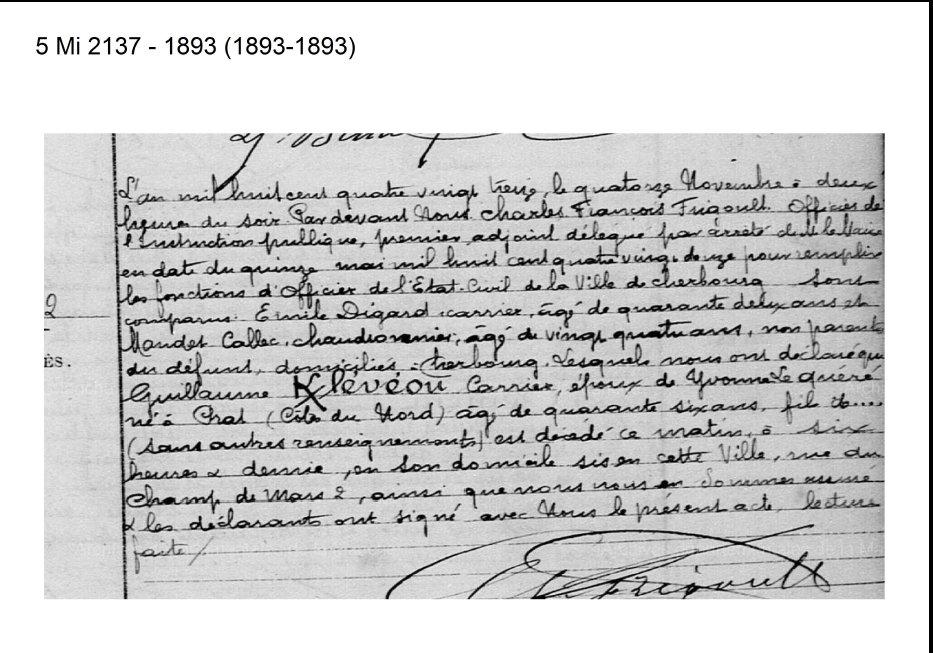 5 Mi 2137 - 1893 (1893-1893)
L'an mil huit cent quatre vingt treize, le quatorze Novembre à deux
heures du soir Par devant Nous Charles François Frigoult Officier de
l'instruction publique, premier adjoint délégué par arrêté de M. le Maire
en date du quinze mai mil huit cent quatre vingt douze pour remplir
les fonctions d'Officier de l'État-Civil de la Ville de cherbourg sont
comparus Emile Digard carrier, âgé de quarante deux ans et
Mandet Callec, chaudronnier, âgé de vingt quatre ans, non parents
du défunt, domiciliés à Cherbourg. Lesquels nous ont déclaré que
2
ÈS.
Guillaume Klevéou Carrier, époux de Yvonne Le quéré
né à Prat (Côtes du Nord) âgé de quarante six ans, fils de....
(sans autres renseignements) est décédé ce matin, à six
heures & demie, en son domicile sis en cette Ville, rue du
Champ de Mars 2, ainsi que nous nous en sommes assuré
& les déclarants ont signé avec Nous le présent acte, lecture
faite /
Frigoult